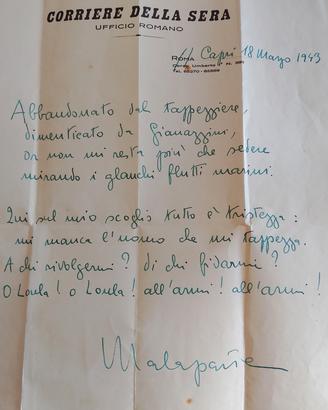 CORRIERE DELLA SERA
UFFICIO ROMANO
ROMA Capri 18 Marzo 1943
Corso Umberto I° N.
Tel.
Abbandonato dal tappezziere,
dimenticato da Gianazzini,
or non mi resta più che sedere
mirando i glauchi flutti marini.
Qui sul mio scoglio tutto è tristezza:
mi manca l'uomo che mi tappezza.
A chi rivolgermi? di chi fidarmi?
O Loula! o Loula! all'armi! all'armi!
Malaparte